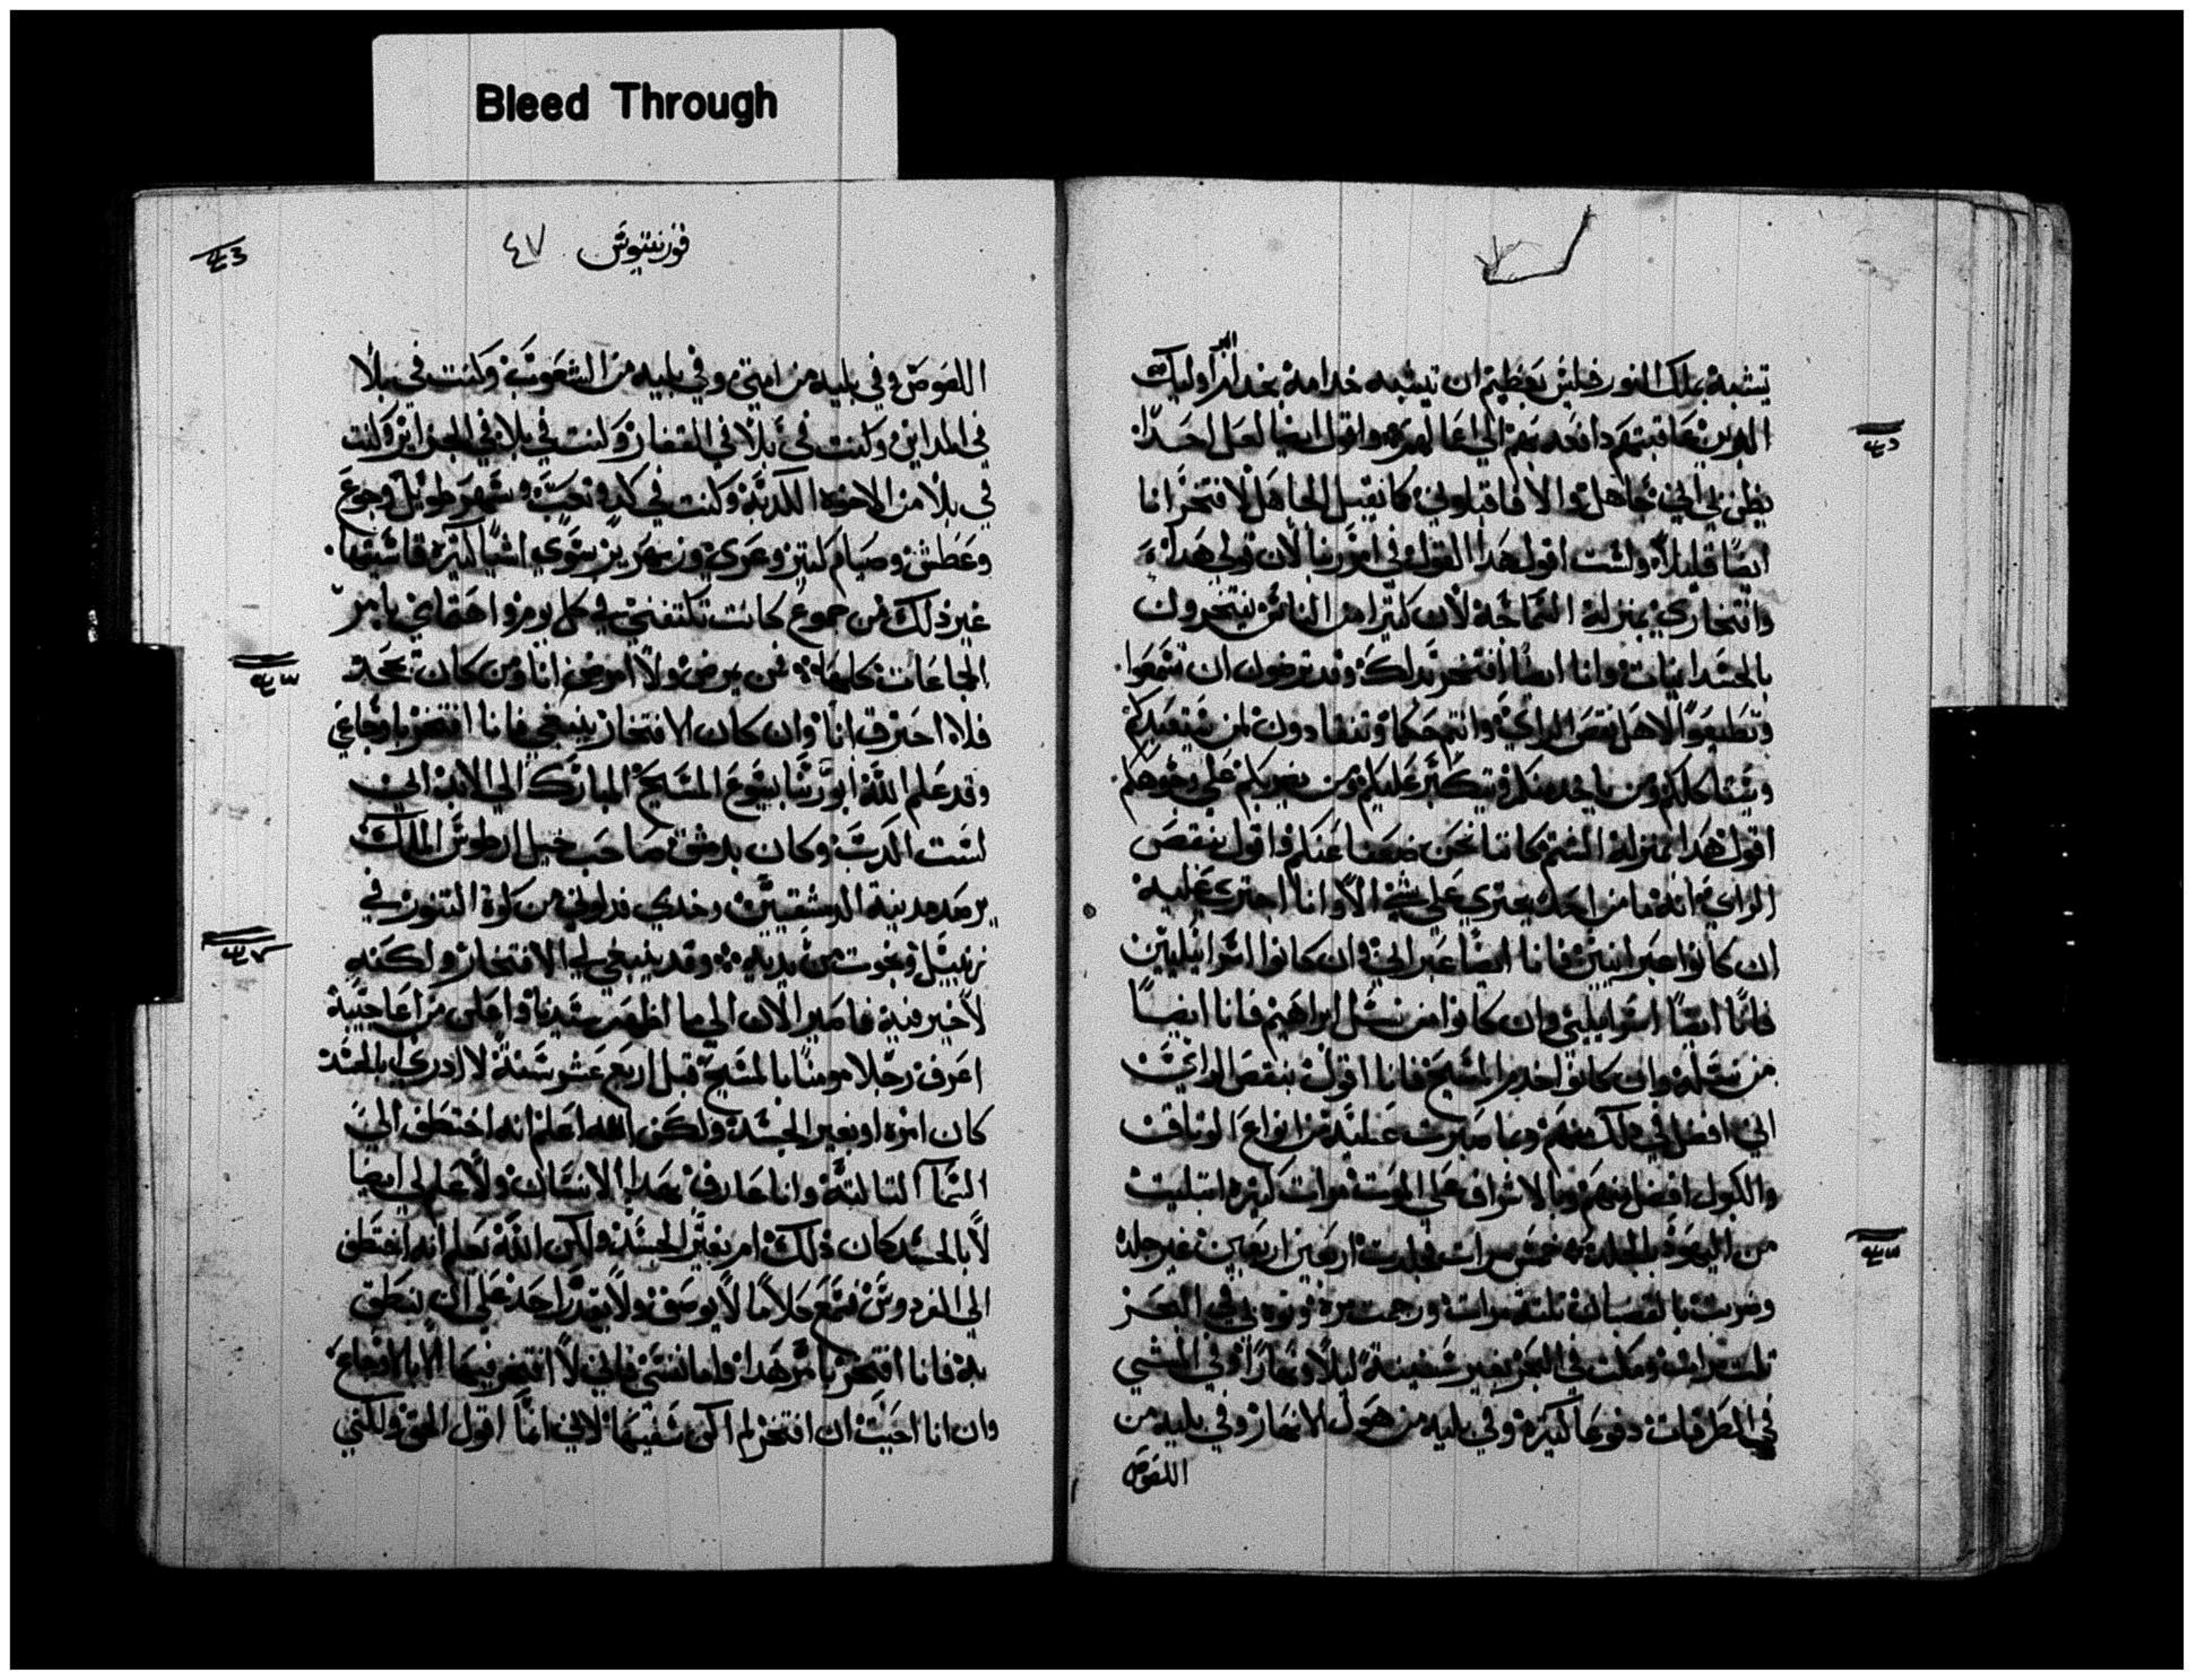 Bleed Through
تشبه بملك النور فليس بعظيم ان تيشبه خدامه بخدام البر اوليك
الدين عاقبتهم دافعه بهم الي اعمالهم واقول ايضا لعل احدا
يظن بي اني جاهل والا فاقبلوني كما يقبل الجاهل لافتخر انا
ايضا قليلا ولست اقول هدا القول في امر ربنا لان قولي هدا
وافتخاري بمنزلة السماجة لان كتيرا من الناس يفتخرون
بالجسدانيات وانا ايضا افتخر بدلك وقد ترضون ان تسمعوا
وتطيعوا لاهل نقص الراي وانتم حكما وتنقادون لمن يتعبدكم
وتتاكلكم ومن ياخد منكم ويتكبر عليكم ومن يضربكم علي وجوهكم
اقول هدا بمنزلة الشتم كاننا نحن ضعفا عندكم واقول بنقص
الراي انه ما من احد يجتري علي شي الا وانا اجتري عليه
ان كانوا عبرانيين فانا ايضا عبراني وان كانوا اسرايليين
فانا ايضا اسرايلي وان كانوا من نسل ابراهيم فانا ايضا
من نسله وان كانوا خدم المسيح فانا اقول بنقص الراي
اني افضل في دلك منهم وبما صبرت عليه من انواع الوثاق
والكبول افضل منهم وبالاشراف علي الموت مرات كتيره ابتليت
من اليهود بالجلد خمس مرات فجلدت اربعين اربعين غير جلدة
وضربت بالقضبان تلتة مرات ورجمت مرة وغرق بي في البحر
تلت مرات ومكتت في البحر بغير سفينة ليلا ونهارا وفي المشي
في الطرقات دفوعا كتيرة وفي بليه من هول الانهار وفي بليه من
اللصوص
قورنتيوس ٤٧
اللصوص وفي بليه من امتي وفي بليه من الشعوب وكنت في بلا
في المداين وكنت في بلا في القفار وكنت في بلا في البحر اين وكنت
في بلا من الاخوه الكدبة وكنت في كد وتعب وسهر طويل وجوع
وعطش وصيام كتير وعري وزمهرير سوي اشيا كتيره قاسيتها
غير ذلك من جموع كانت تكتنفني في كل يوم واهتمامي بامر
الجماعات كلها فمن يمرض ولا امرض انا ومن كان يجد
فلا احترق انا وان كان الافتخار ينبغي فانا افتخر باوجاعي
وقد علم الله ابو ربنا يسوع المسيح المبارك الي الابد اني
لست اكدب وكان بدمشق صاحب خيل ارطوس الملك
يرصد مدينة الدمشقيين وخدي فدلوني من كوة السور في
زنبيل ونجوت من يديه وقد ينبغي لي الافتخار ولكنه
لا خير فيه فاصير الان الي ما اظهر سيدنا واعلن من اعاجيبه
اعرف رجلا مومنا بالمسيح قبل اربع عشر سنة لا ادري بالجسد
كان امره او بغير الجسد ولكن الله اعلم انه اختطف الي
السما التالتة وانا عارف بهدا الانسان ولا علم لي ايضا
لا بالجسد كان ذلك ام بغير الجسد ولكن الله يعلم انه اختطف
الي الفردوس فسمع كلاما لا يوصف ولا يقدر احد علي ان ينطق
به فانا افتخر بامر هدا واما نفسي فاني لا افتخر فيها الا بالاوجاع
وان انا احببت ان افتخر لم اكن سفيها لاني انما اقول الحق ولكني